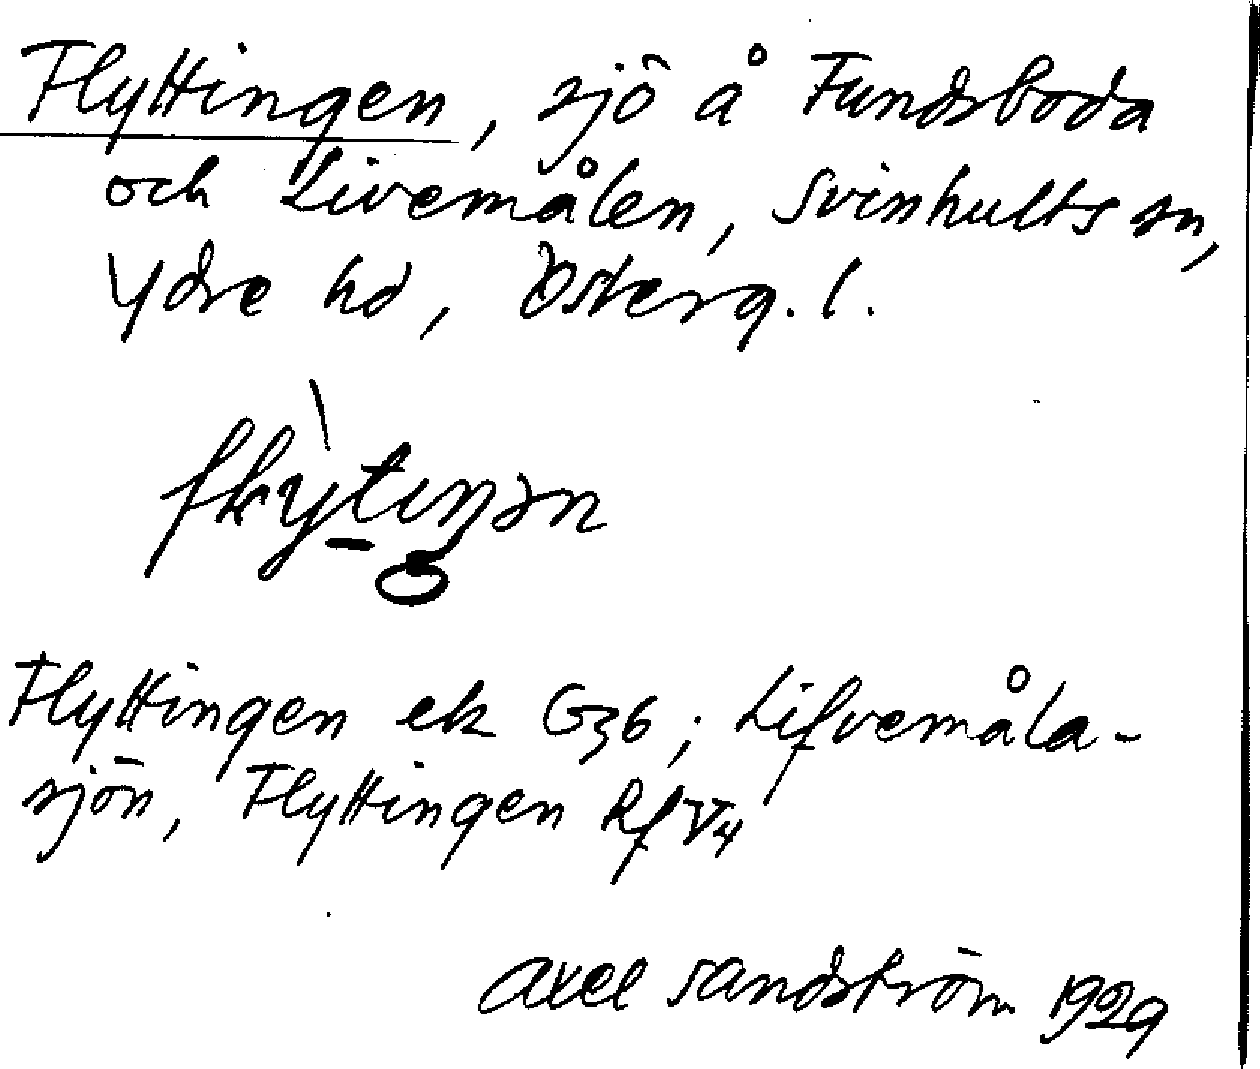 Flyttingen, sjö å Fundsboda
och Livemålen, Svinhults sn,
Ydre hd, Österg. l.
flỳtiŋən
Flyttingen ek G36; Lifvemåla-
sjön, Flyttingen Rf V4
Axel Sandström 1929